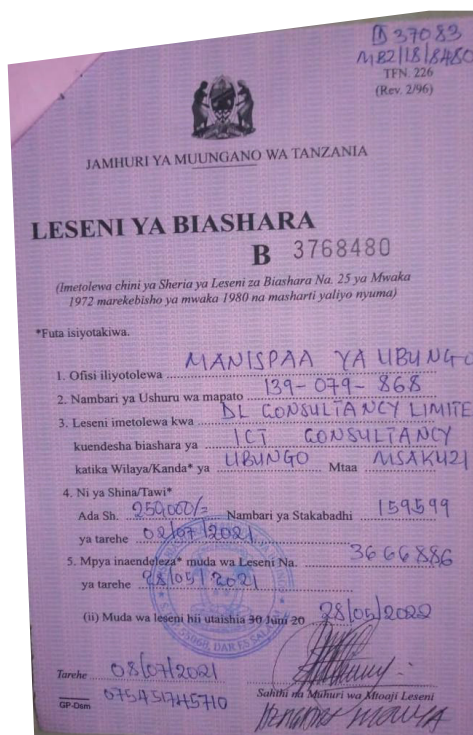 B 37083
MB2/18/8480
TFN. 226
(Rev. 2/96)
JAMHURI YA MUUNGANO WA TANZANIA
LESENI YA BIASHARA
B 3768480
(Imetolewa chini ya Sheria ya Leseni za Biashara Na. 25 ya Mwaka
1972 marekebisho ya mwaka 1980 na masharti yaliyo nyuma)
*Futa isiyotakiwa.
1. Ofisi iliyotolewa MANISPAA YA UBUNGO
2. Nambari ya Ushuru wa mapato 139-079-868
3. Leseni imetolewa kwa DL CONSULTANCY LIMITE
kuendesha biashara ya ICT CONSULTANCY
katika Wilaya/Kanda* ya UBUNGO Mtaa MSAKUZI
4. Ni ya Shina/Tawi*
Ada Sh. 250,000/= Nambari ya Stakabadhi 159599
ya tarehe 02/07/2021
5. Mpya inaendeleza* muda wa Leseni Na. 3666886
ya tarehe 28/05/2021
(ii) Muda wa leseni hii utaishia 30 Juni 20 28/05/2022
Tarehe 08/07/2021
Sahihi na Muhuri wa Mtoaji Leseni
GP-Dsm